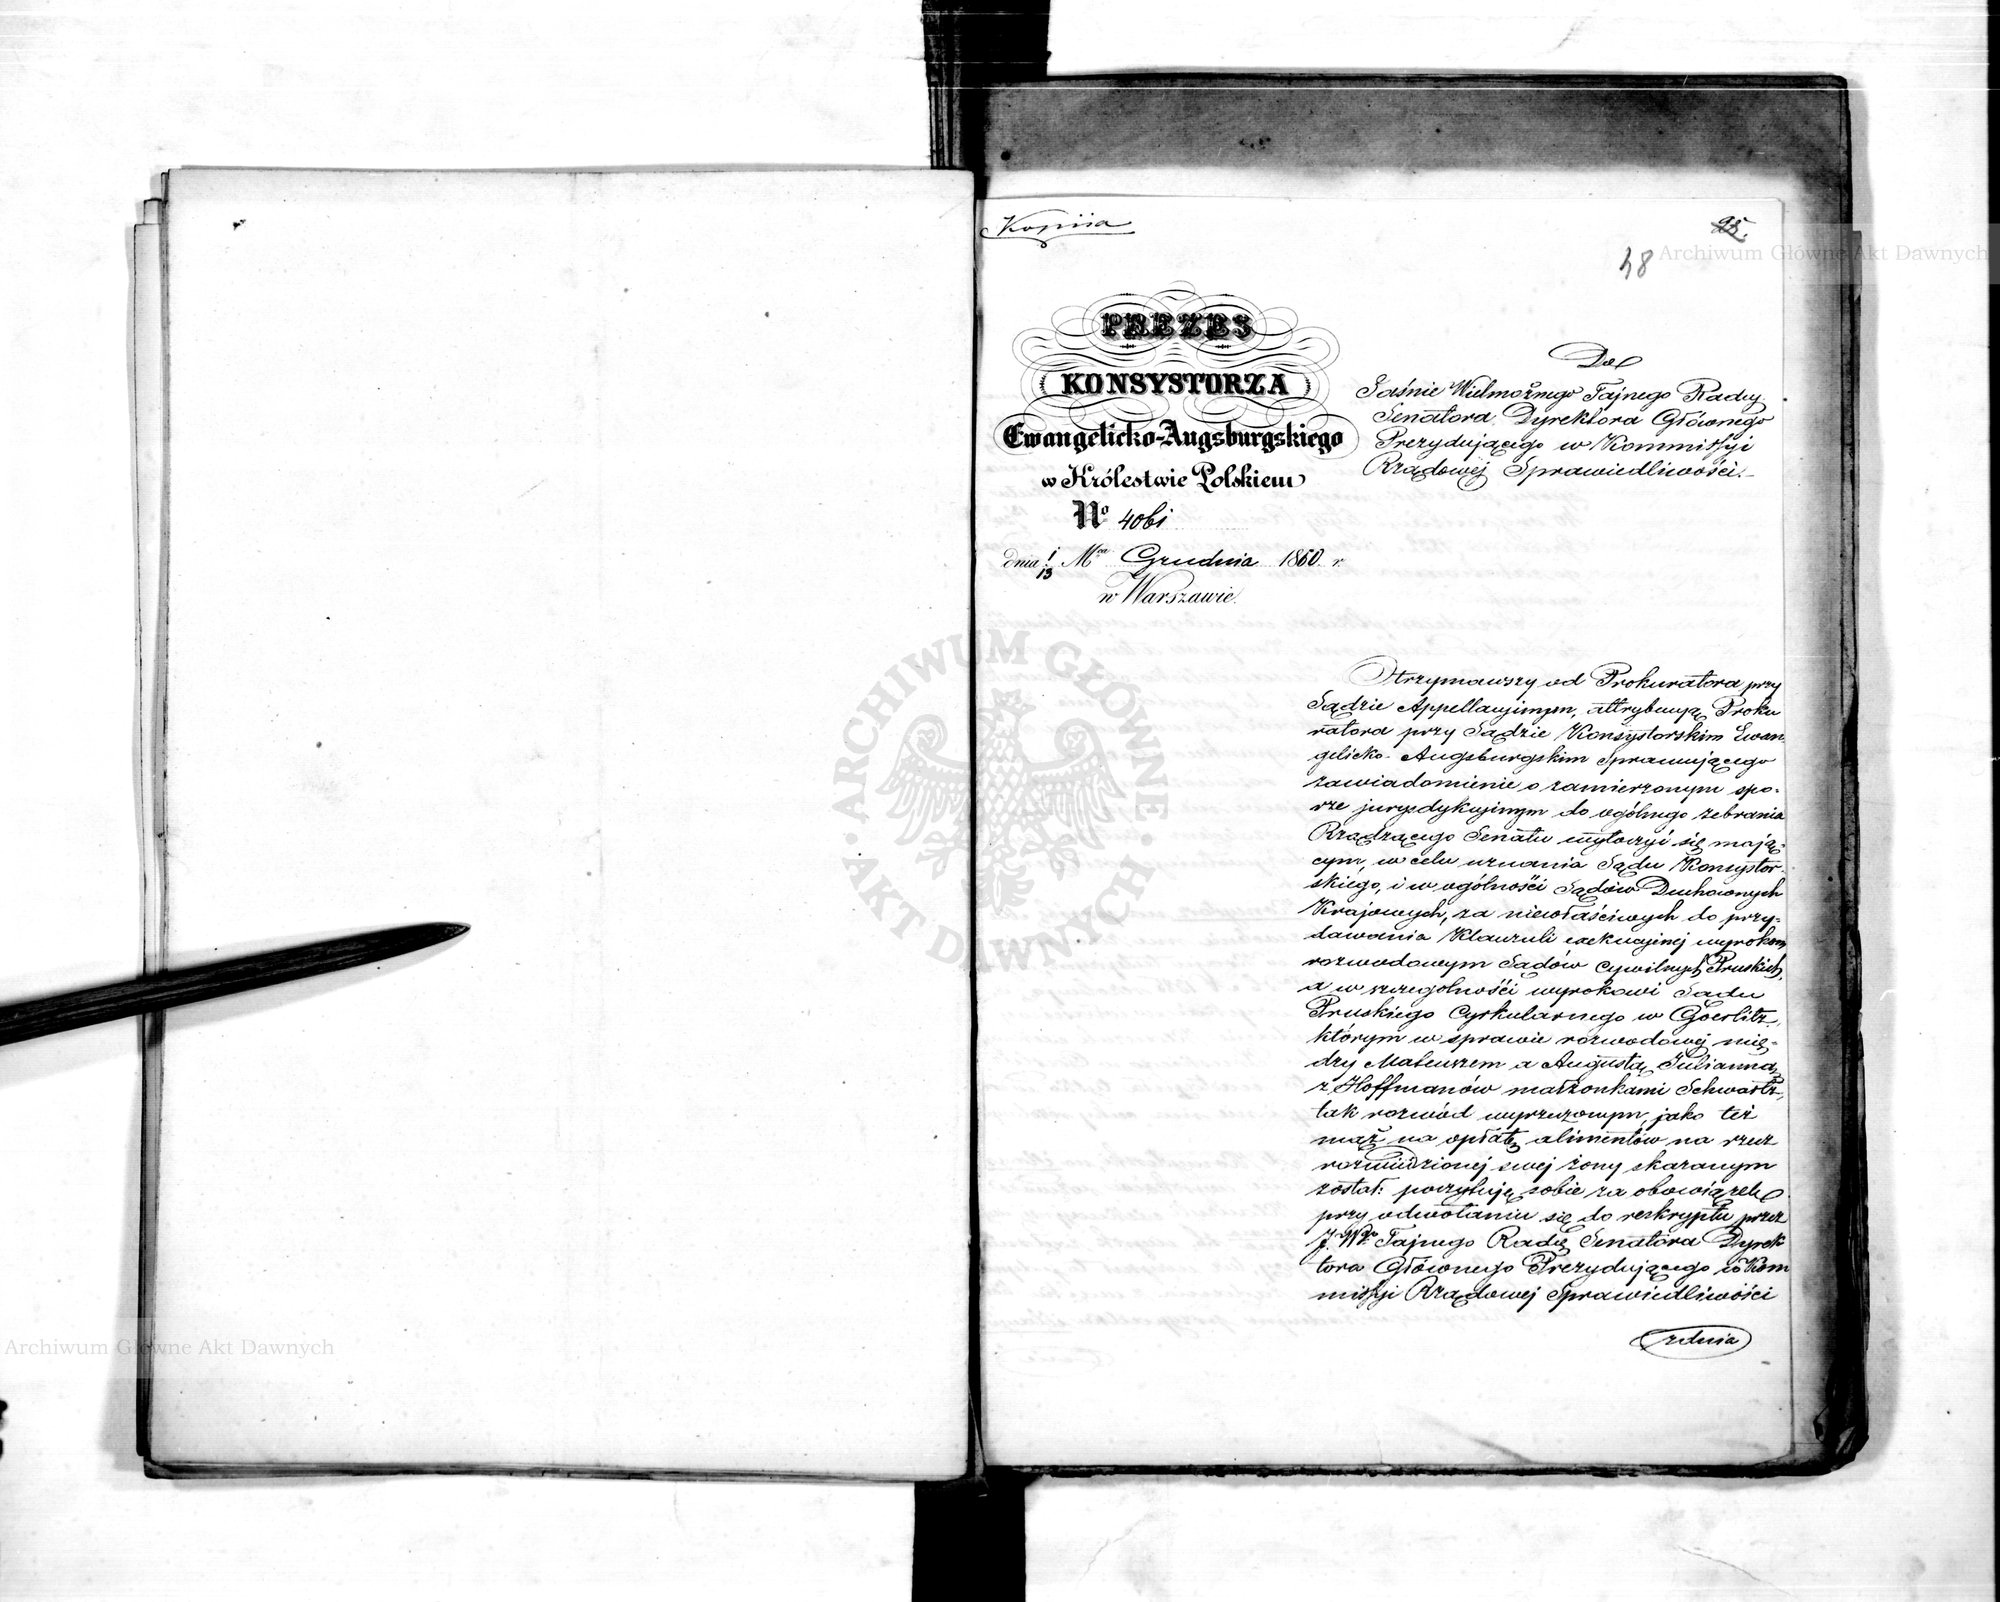 Kopiia
95.
48
PREZES
KONSYSTORZA
Ewangelicko-Augsburgskiego
w Królestwie Polskiem
No 4061
dnia 1/13 Mca Grudnia 1860 r.
w Warszawie.
Do
Jaśnie Wielmożnego Tajnego Radcy
Senatora, Dyrektora Głównego
Prezydującego w Kommissyi
Rządowej Sprawiedliwości.
Otrzymawszy od Prokuratora przy
Sądzie Appellacyjnym, attrybucyą Proku
ratora przy Sądzie Konsystorskim Ewan
gelicko-Augsburgskim Sprawującego
zawiadomienie o zamierzonym spo-
rze jurysdykcyjnym do ogólnego zebrania
Rządzącego Senatu wytoczyć się mają-
cym, w celu uznania Sądu Konsystor-
skiego, i w ogólności Sądów Duchownych
Krajowych, za niewłaściwych do przy-
dawania Klauzuli exekucyjnej wyrokom
rozwodowym Sądów Cywilnych Pruskich,
a w szczególności wyrokowi Sądu
Pruskiego Cyrkularnego w Goerlitz,
którym w sprawie rozwodowej mię-
dzy Mateuszem a Augustą Julianną
z Hoffmanów małżonkami Schwartz,
tak rozwód wyrzeczonym, jako też
mąż na opłatę alimentów na rzecz
rozwiedzionej swej żony skazanym
został: poczytuję sobie za obowiązek
przy odwołaniu się do reskryptu przez
J. Wgo Tajnego Radcę Senatora Dyrek
tora Głównego Prezydującego w Kom
missyi Rządowej Sprawiedliwości
zdnia
ARCHIWUM GŁÓWNE AKT DAWNYCH
Archiwum Główne Akt Dawnych
Archiwum Główne Akt Dawnych